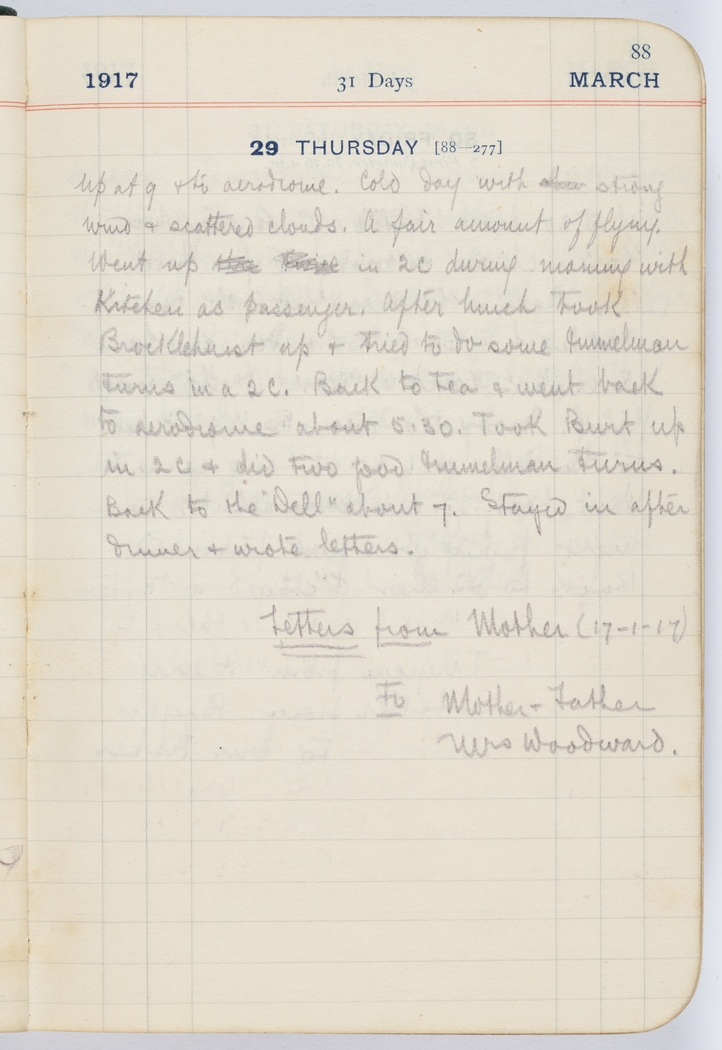 88
1917 31 Days MARCH
29 THURSDAY [88—277]
Up at 9 & to aerodrome. Cold day with strong
wind & scattered clouds. A fair amount of flying.
Went up in 2C during morning with
Kitchen as passenger. After lunch took
Brocklehurst up & tried to do some Immelman
turns in a 2C. Back to tea & went back
to aerodrome about 5.30. Took Burt up
in 2C & did two good Immelman turns.
Back to the "Dell" about 7. Stayed in after
dinner & wrote letters.
Letters from Mother (17-1-17)
To Mother & Father
Mrs Woodward.